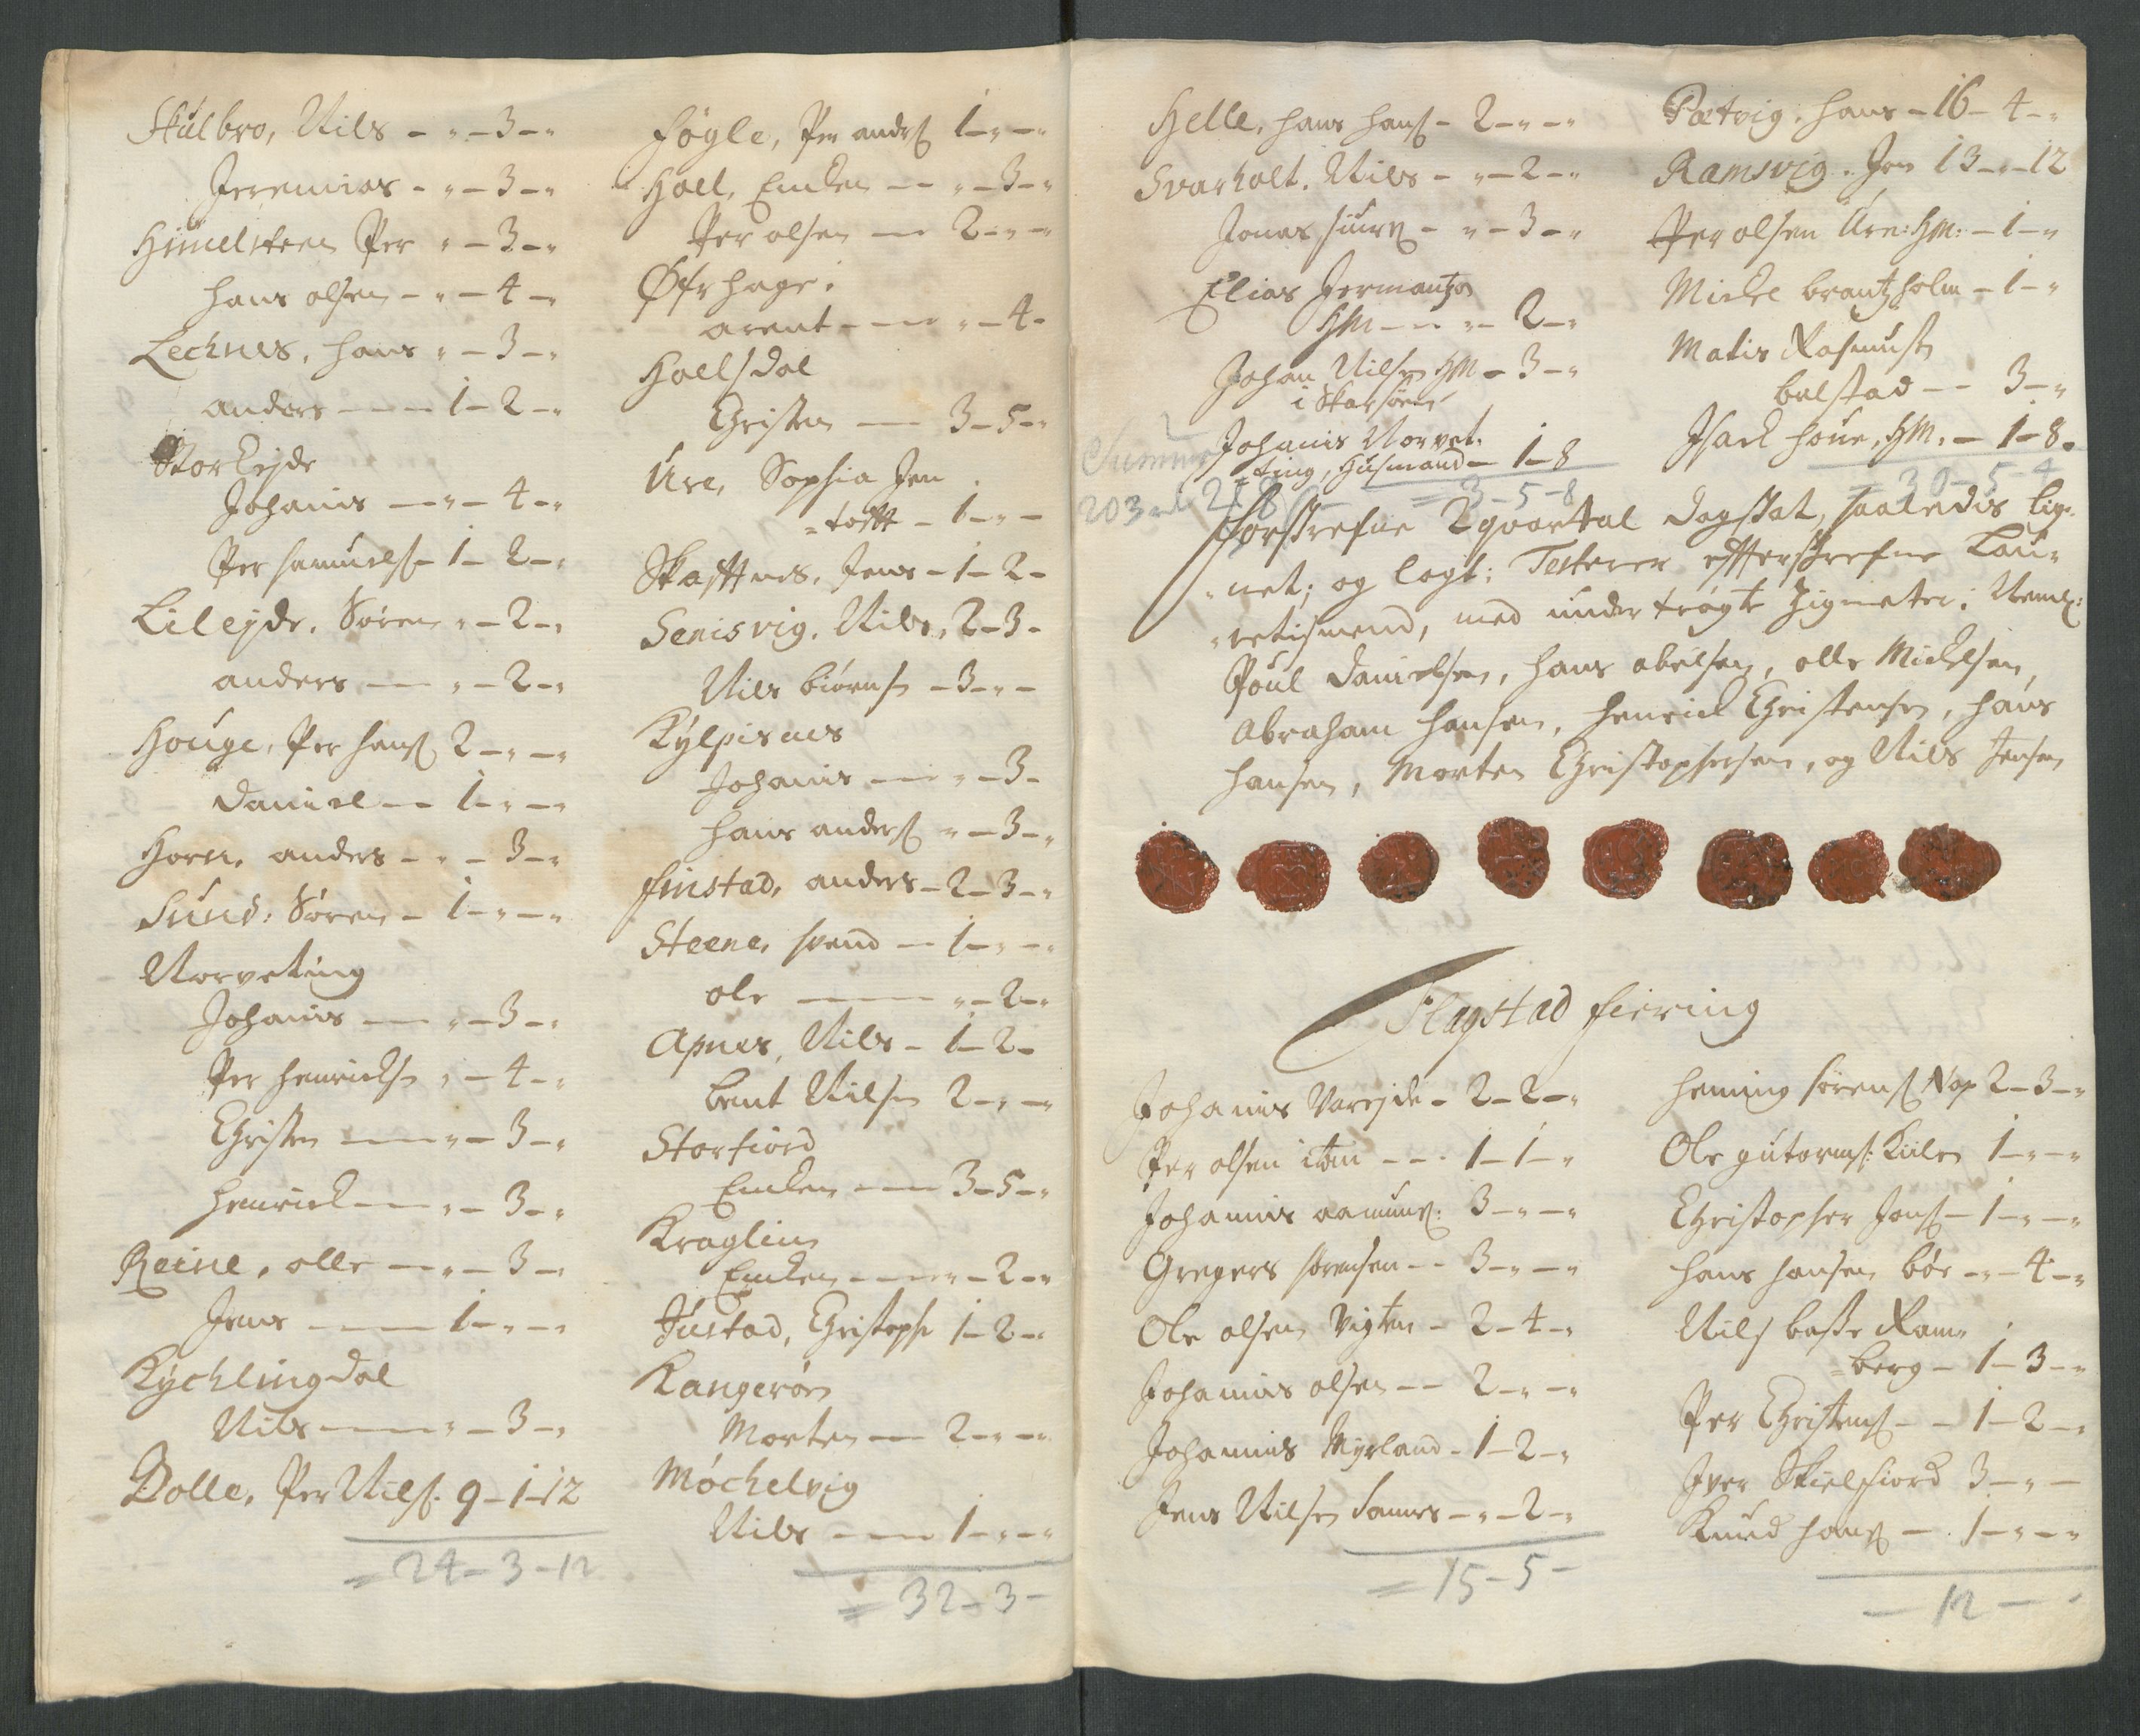 Skulbro, Nils - " - 3 - "
Jeremias - " - 3 - "
Himelsteen Per " - 3 - "
hans olsen - " - 4 - "
Lechnes, hans " - 3 - "
anders - 1 - 2 - "
Storeyde
Johanis - " - 4 - "
Per Samuels - 1 - 2 - "
Lileyde, Sören " - 2 - "
anders - " - 2 - "
Houge, Per hans 2 - " - "
Daniel - 1 - " - "
Horn, anders - " - 3 - "
Sund, Sören - 1 - " - "
Norveting
Johanis - " - 3 - "
Per henrichs " - 4 - "
Christen - " - 3 - "
henrich - " - 3 - "
Reine, olle - " - 3 - "
Jens - 1 - " - "
Kychlingdal
Nils - " - 3 - "
Bolle, Per Nils: 9 - 1 - 12
= 24 - 3 - 12
fögle, Per anders 1 - " - "
Holl, Emken - " - 3 - "
Per olsen - 2 - " - "
Øfrhage:
arent - " - 4 -
Hollsdal
Christen - 3 - 5 - "
Ure, Sophia Jen
= tofft - 1 - " -
Skafftnes, Jens - 1 - 2 -
Senisvig, Nils, 2 - 3 -
Nils biörns - 3 - " -
Kylpisnes
Johanis - " - 3 -
hans anders " - 3 - "
finstad, anders - 2 - 3 - "
Steene, svend - 1 - " - "
ole - " - 2 - "
Apnes, Nils - 1 - 2 -
bent Nilsen 2 - " - "
Storfiord
Emken - 3 - 5 - "
Kraglien
Emken - " - 2 - "
Justad, Christoph 1 - 2 - "
Kangerön
Morten - 2 - " - "
Möchelvig
Nils - 1 - " - "
= 32 - 3 -
Helle, hans hans - 2 - " - "
Svarholt, Nils - " - 2 - "
Jonas - " - 3 - "
Elias Jermantzøn
HM - " - 2 - "
Johan Nilsen HM - 3 - "
i
Johanis Norvet
= ting, Husmand - 1 - 8
= 3 - 5 - 8
Pætvig, hans - 16 - 4 - "
Ramsvig, Jon 13 - " - 12
Per olsen Ure: HM: - 1 - "
Micke brantzholm - 1 - "
Matis Rasmus
balstad - 3 - "
Isach houe, HM, - 1 - 8.
= 30 - 5 - 4
Summa
203
forskrefne 2 qvartal dagskat, saaledis lig
"net; og lagt; Testerer effterskrefne Lau"
"retismend, med undertrögte Zigneter: Neml:
Poul Danielsen, hans abelsen, olle Mickelsen,
Abraham hansen, henrich Christensen, hans
hansen, Morten Christophersen, og Nils Jensen
Flagstad fiering
Johanis Vareyde - 2 - 2 - "
Per olsen item - 1 - 1 - "
Johannis aamuns: 3 - " - "
Gregers sörensen - 3 - " - "
Ole olsen Vigten - 2 - 4 - "
Johannis olsen - 2 - " - "
Johannis Myrland - 1 - 2 - "
Jens Nilsen Sannes - " - 2 - "
= 15 - 5 -
heming sörens Nap 2 - 3 - "
Ole gutorms: Kiilen 1 - " - "
Christopher Jons - 1 - " - "
hans hansen böe - " - 4 - "
Nils baste Ram
= berg - 1 - 3 - "
Per Christens - 1 - 2 - "
Iver Skielfiord 3 - " -
Knud hans - 1 - " - "
- 12 - -